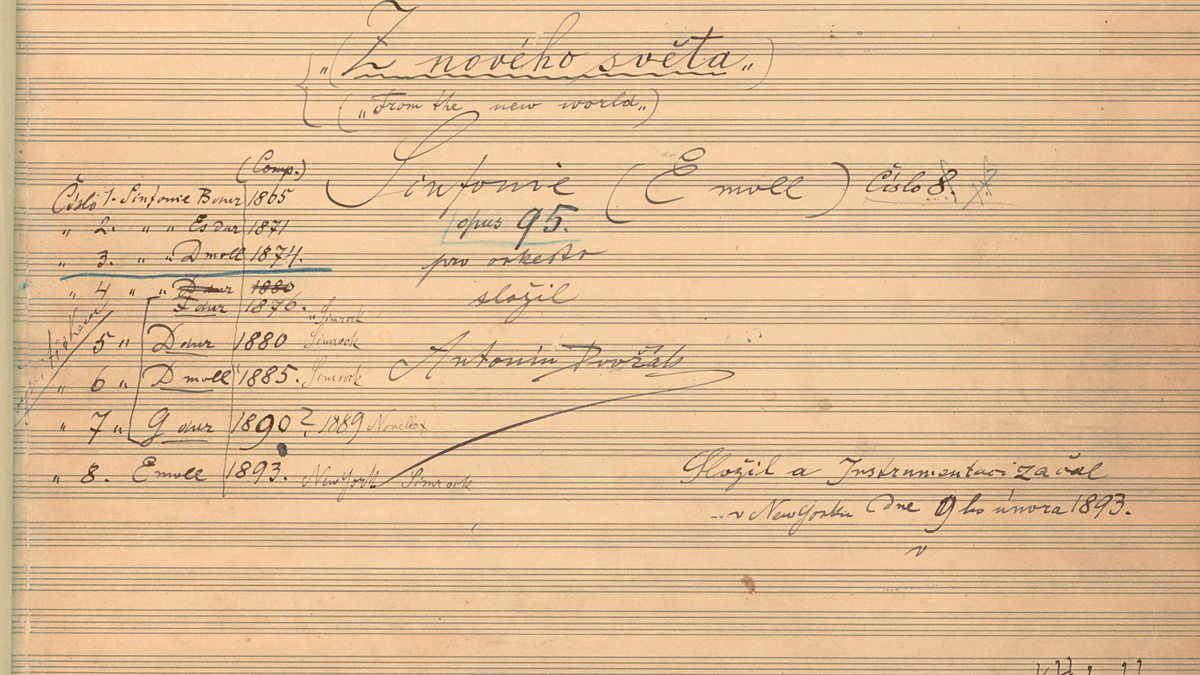 „Z nového světa„
(„From the new world„)
(Comp.)
Sinfonie (E moll) Číslo 8.
Číslo 1. Sinfonie B dur 1865
opus 95.
„ 2. „ „ Es dur 1871
„ 3. „ „ D moll 1874.
pro orkestr
„ 4 „ „ D dur 1880
složil
F dur 1876. Simrock
5 „ D dur 1880 Simrock
Antonín Dvořák
„ 6 „ D moll 1885. Simrock
„ 7 „ G dur 1890? 1889 Novello
„ 8. E moll 1893. New York Simrock
Složil a Instrumentaci začal
v New Yorku dne 9ho února 1893.